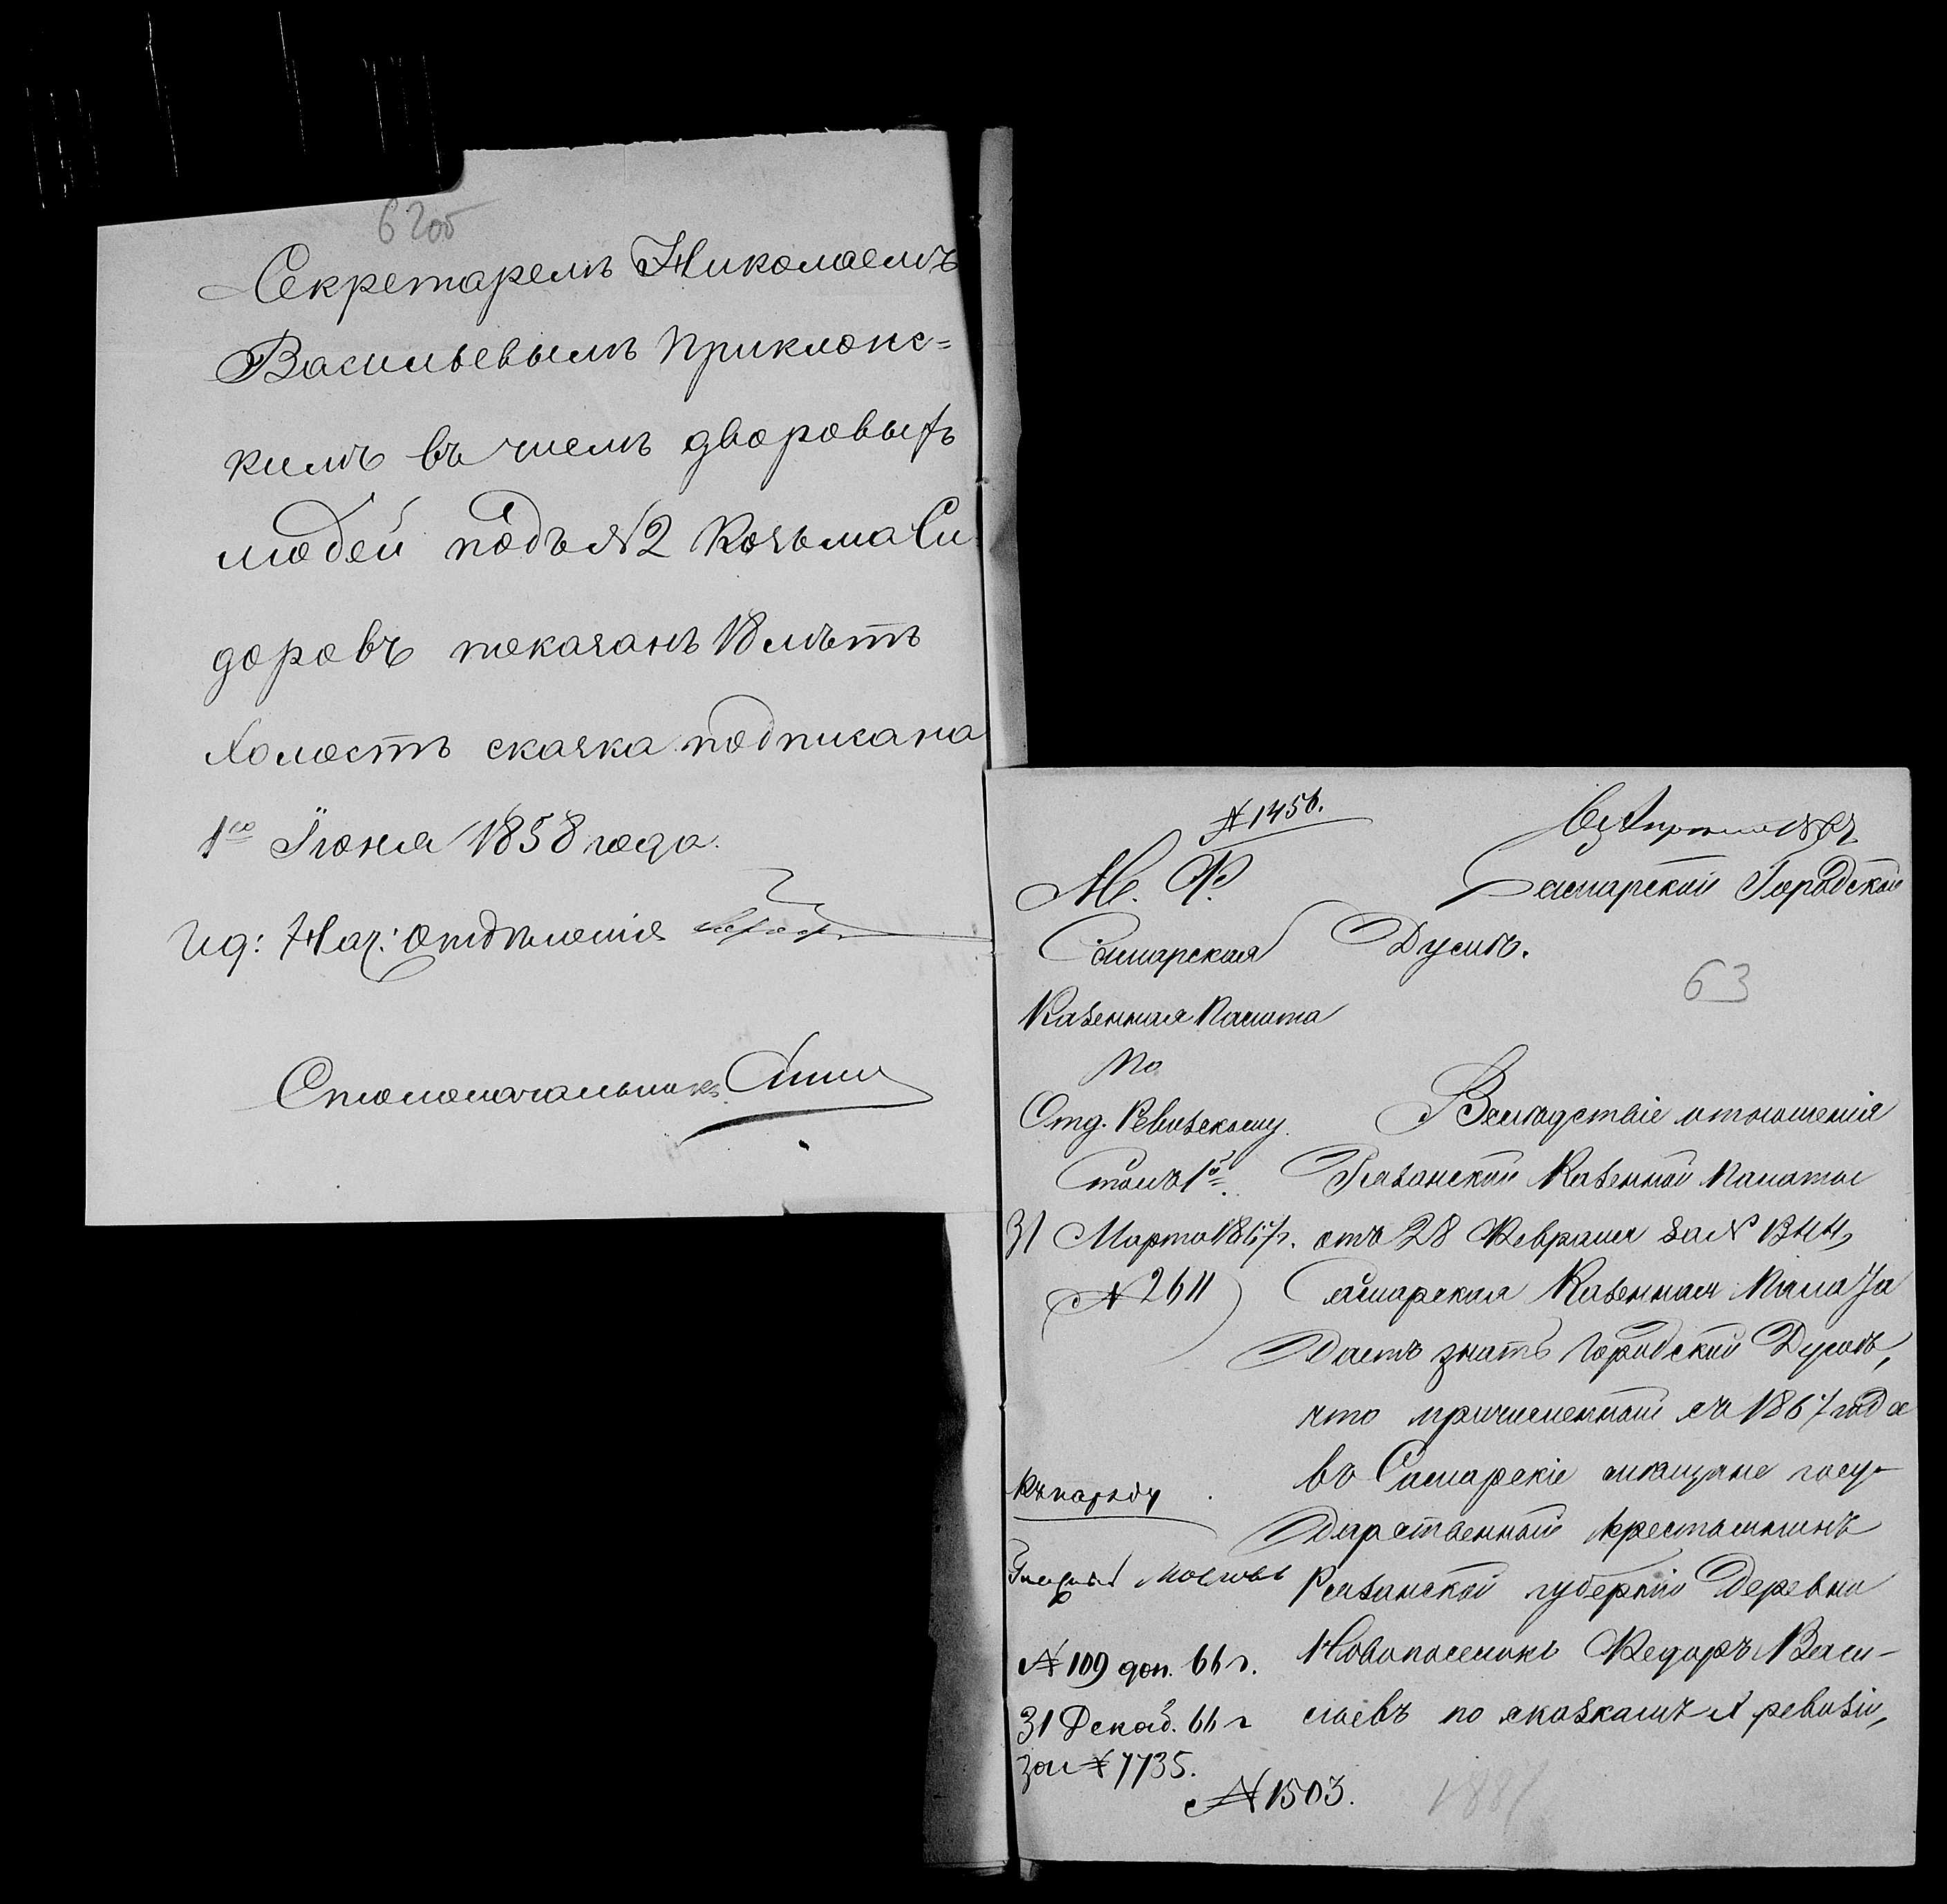 62об
Секретаремъ Николаемъ
Васильевымъ Приклонс=
кимъ въ числѣ дворовыхъ
людей подъ №2 Козьма Си
доровъ показанъ 18 лѣтъ
холостъ сказка подписана
1го Іюня 1858 года.
Ид: Нач: Отдѣленія
Столоначальникъ
№1456.
6 Апрѣля 1867
М. Ф.
Самарской Городской
Самарская
Думѣ.
63
Казенная Палата
По
Отд. Ревизскому
Столъ 1й
31 Марта 1867 г.
№ 2611
Вслѣдствіе отношенія
Рязанской Казенной Палаты
отъ 28 Февраля за №
Самарская Казенная Палата
даетъ знать Городской Думѣ,
что причисленный съ 1867 года
въ Самарскіе мѣщане госу-
дарственный крестьянинъ
Рязанской губерніи деревни
Новопоселокъ Федоръ Васи-
льевъ по сказкамъ X ревизіи,
Къ
№ 109 доп. 66 г.
31 Декаб. 66 г
за № 7735.
№ 1503.